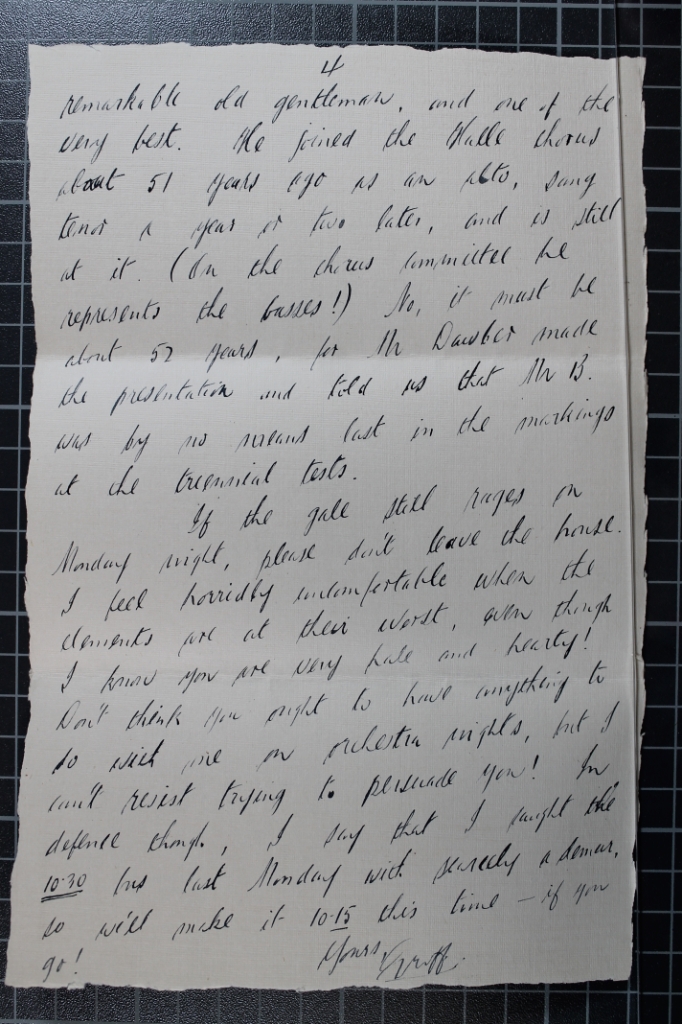 4
remarkable old gentleman, and one of the
very best. He joined the Halle chorus
about 51 years ago as an alto, sang
tenor a year or two later, and is still
at it. (On the chorus committee he
represents the basses!) No, it must be
about 52 years, for Mr Dawber made
the presentation and told us that Mr B.
was by no means last in the markings
at the triennial tests.
If the gale still rages on
Monday night, please don't leave the house.
I feel horridly uncomfortable when the
elements are at their worst, even though
I know you are very hale and hearty!
Don't think you ought to have anything to
do with me on orchestra nights, but I
can't resist trying to persuade you! In
defence though, I say that I caught the
10-30 bus last Monday with scarcely a demur,
so we'll make it 10-15 this time – if you
go!
Yours